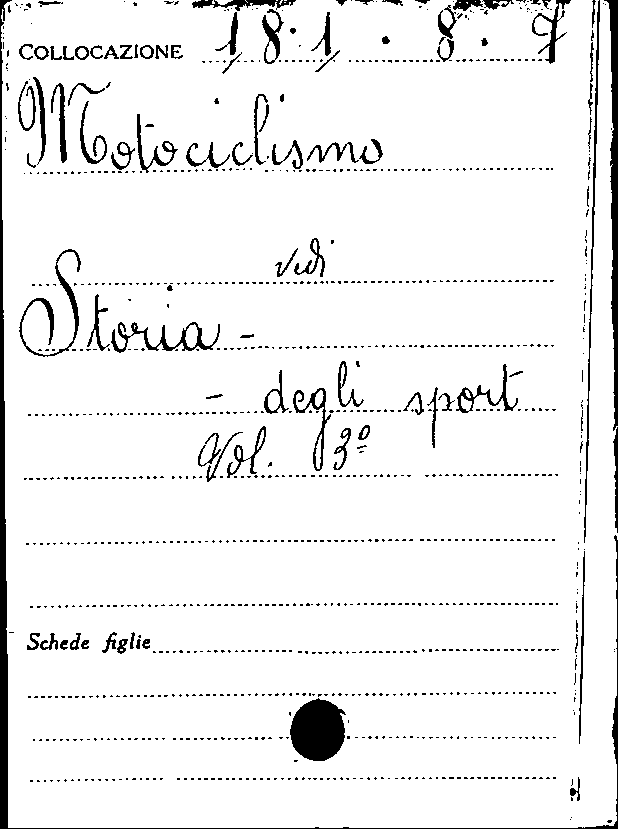 COLLOCAZIONE 181.8.7
Motociclismo
vedi
Storia -
- degli sport
Vol. 3º
Schede figlie